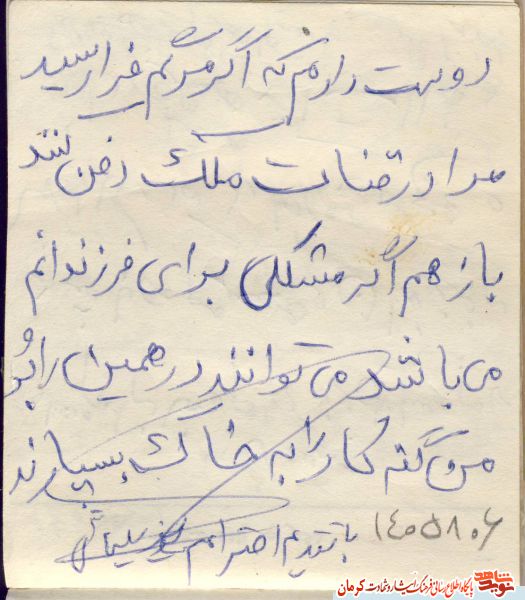 دوست دارم که اگر مرگم فرا رسید
مرا در قنات ملک دفن کنند
باز هم اگر مشکلی برای فرزندانم
می باشد می توانند در همین رابُر
من گنه کار را به خاک بسپارند
با تقدیم احترام سلیمانی
۱۴۰۵۸۰۶
نوید شاهد پایگاه اطلاع رسانی فرهنگ ایثار و شهادت کرمان